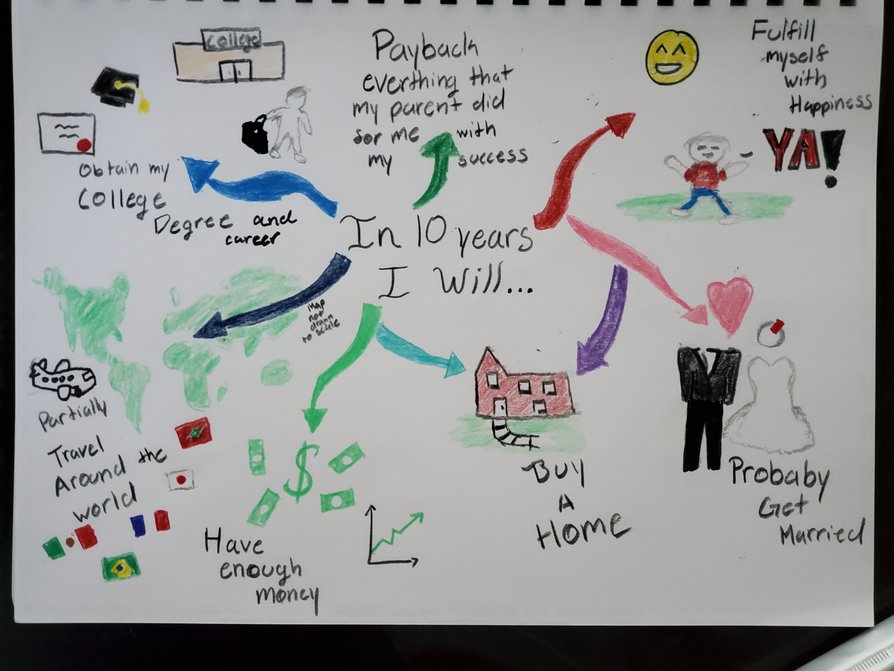 College
Obtain my
College
Degree and
career
Payback
everthing that
my parent did
for me with
my success
Fulfill
myself
with
Happiness
YA!
In 10 years
I Will...
Map
not
drawn
to scale
Partially
Travel
Around the
world
$
Have
enough
money
Buy
A
Home
Probaby
Get
Married